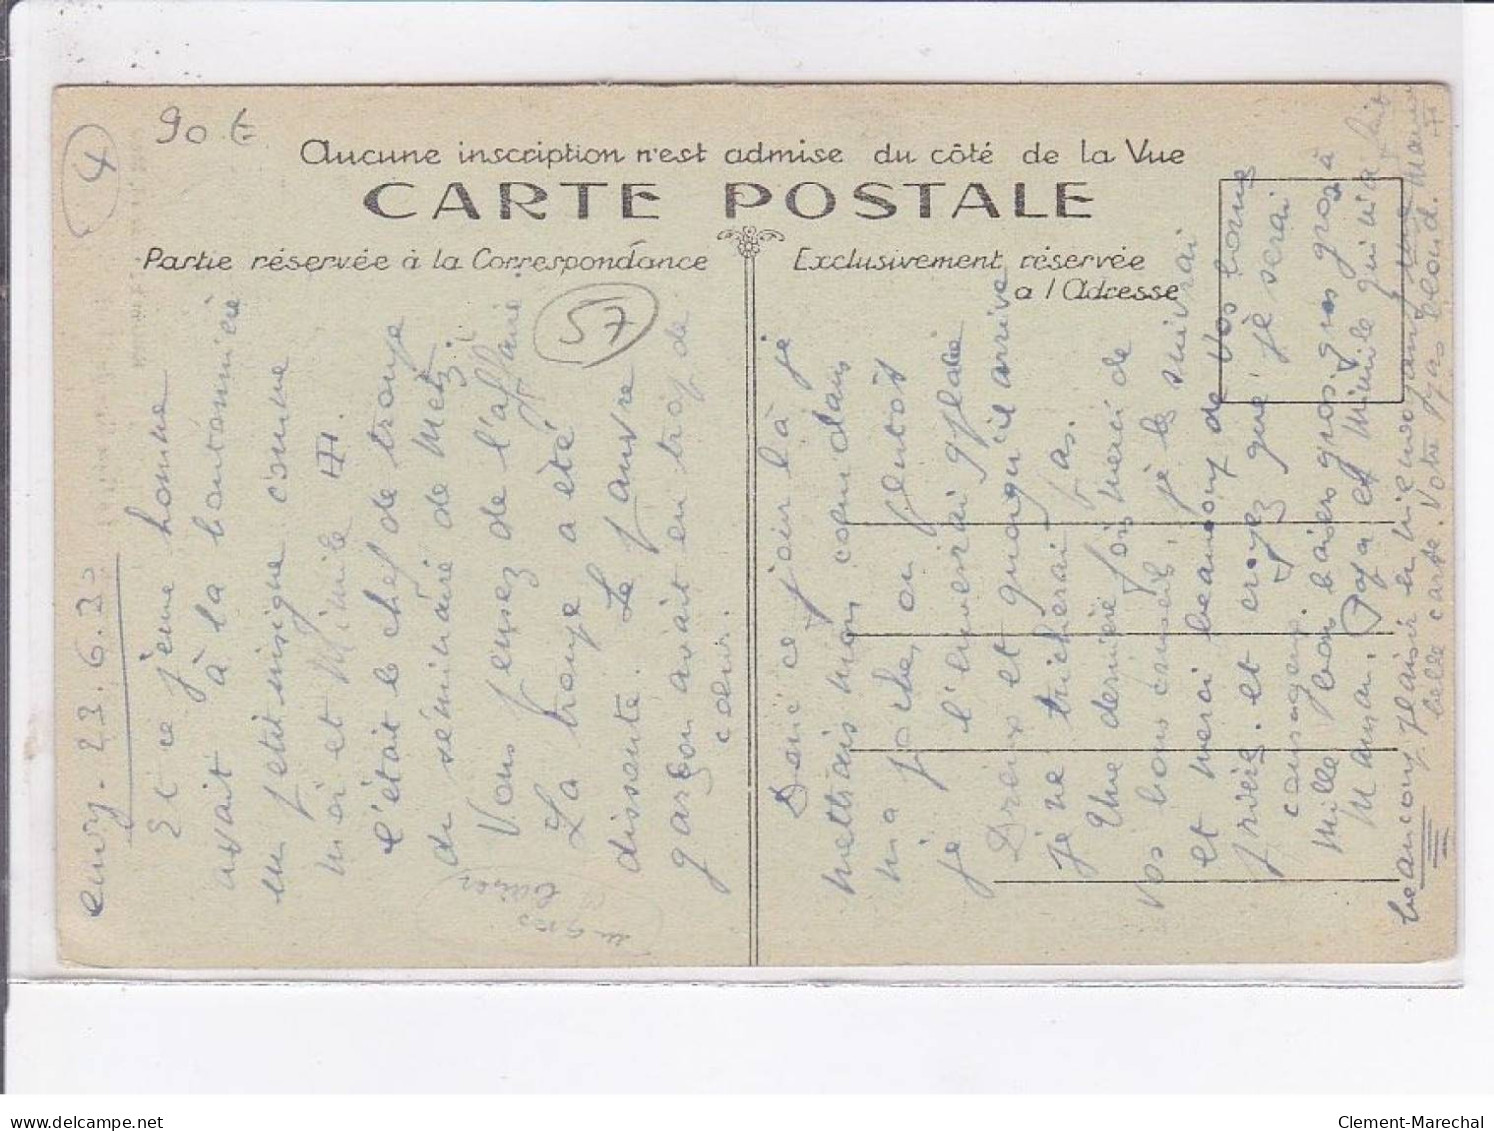 4
90 E
Aucune inscription n'est admise du côté de la Vue
CARTE POSTALE
Partie réservée à la Correspondance
Exclusivement réservée
a l'Adresse
57
23.6.3
Et ce jeune homme
avait à la boutonnière
un petit insigne comme
moi et Mimile
C'était le chef de troupe
du séminaire de Metz.
Vous pensez de l'affaire
La troupe a été
dissoute. Le pauvre
garçon avait en trop de
cœur.
un gros
baiser
Donc ce jour là je
mettrais mon cœur dans
ma poche, ou plutôt
je l'
Dreux et quoiqu'il arrive
je ne tricherai pas.
Une dernière fois merci de
vos bons conseils, je le suivrai
et merci beaucoup de vos bonnes
prières. et croyez que je serai
courageux.
Mille bons baisers gros. gros gros à
Maman, Papa et Mimile qui m'a fait
beaucoup plaisir en m'envoyant une
belle carte. Votre blond.
Clement-Marechal
www.delcampe.net